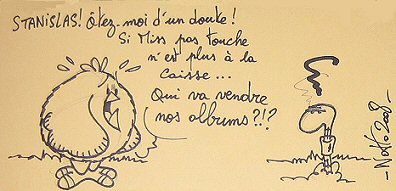 STANISLAS! Ôtez-moi d'un doute!
Si Miss pas touche
n'est plus à la
caisse...
Qui va vendre
nos albums?!?
-NekKo 2008-